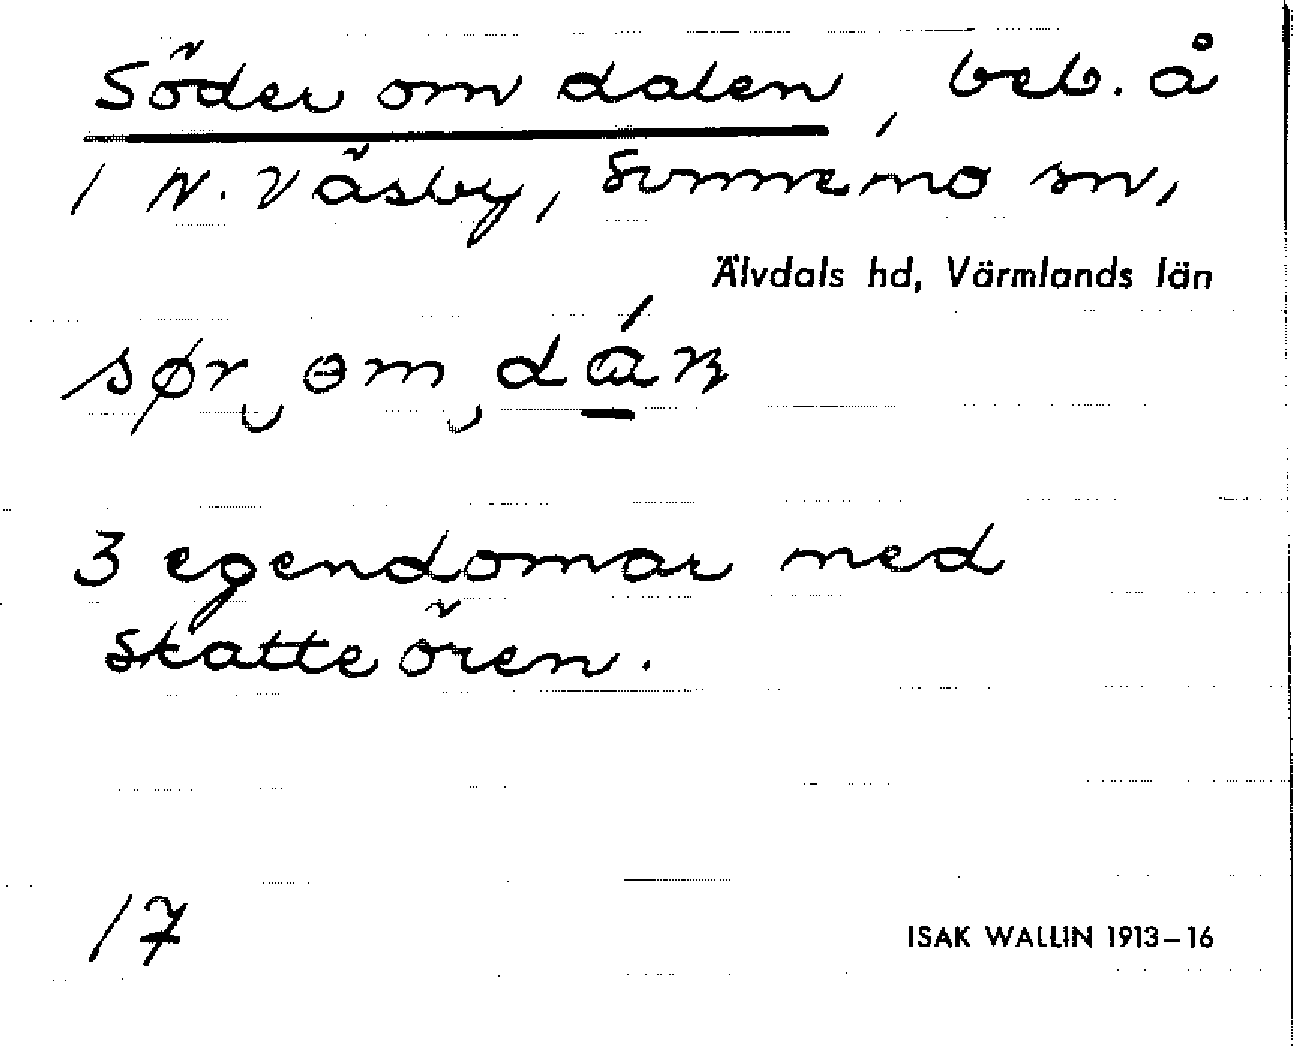 Söder om dalen, beb. å
1 N. Väsby, Sunnemo sn,
Älvdals hd, Värmlands län
3 egendomar med
skatteören.
17
ISAK WALLIN 1913–16